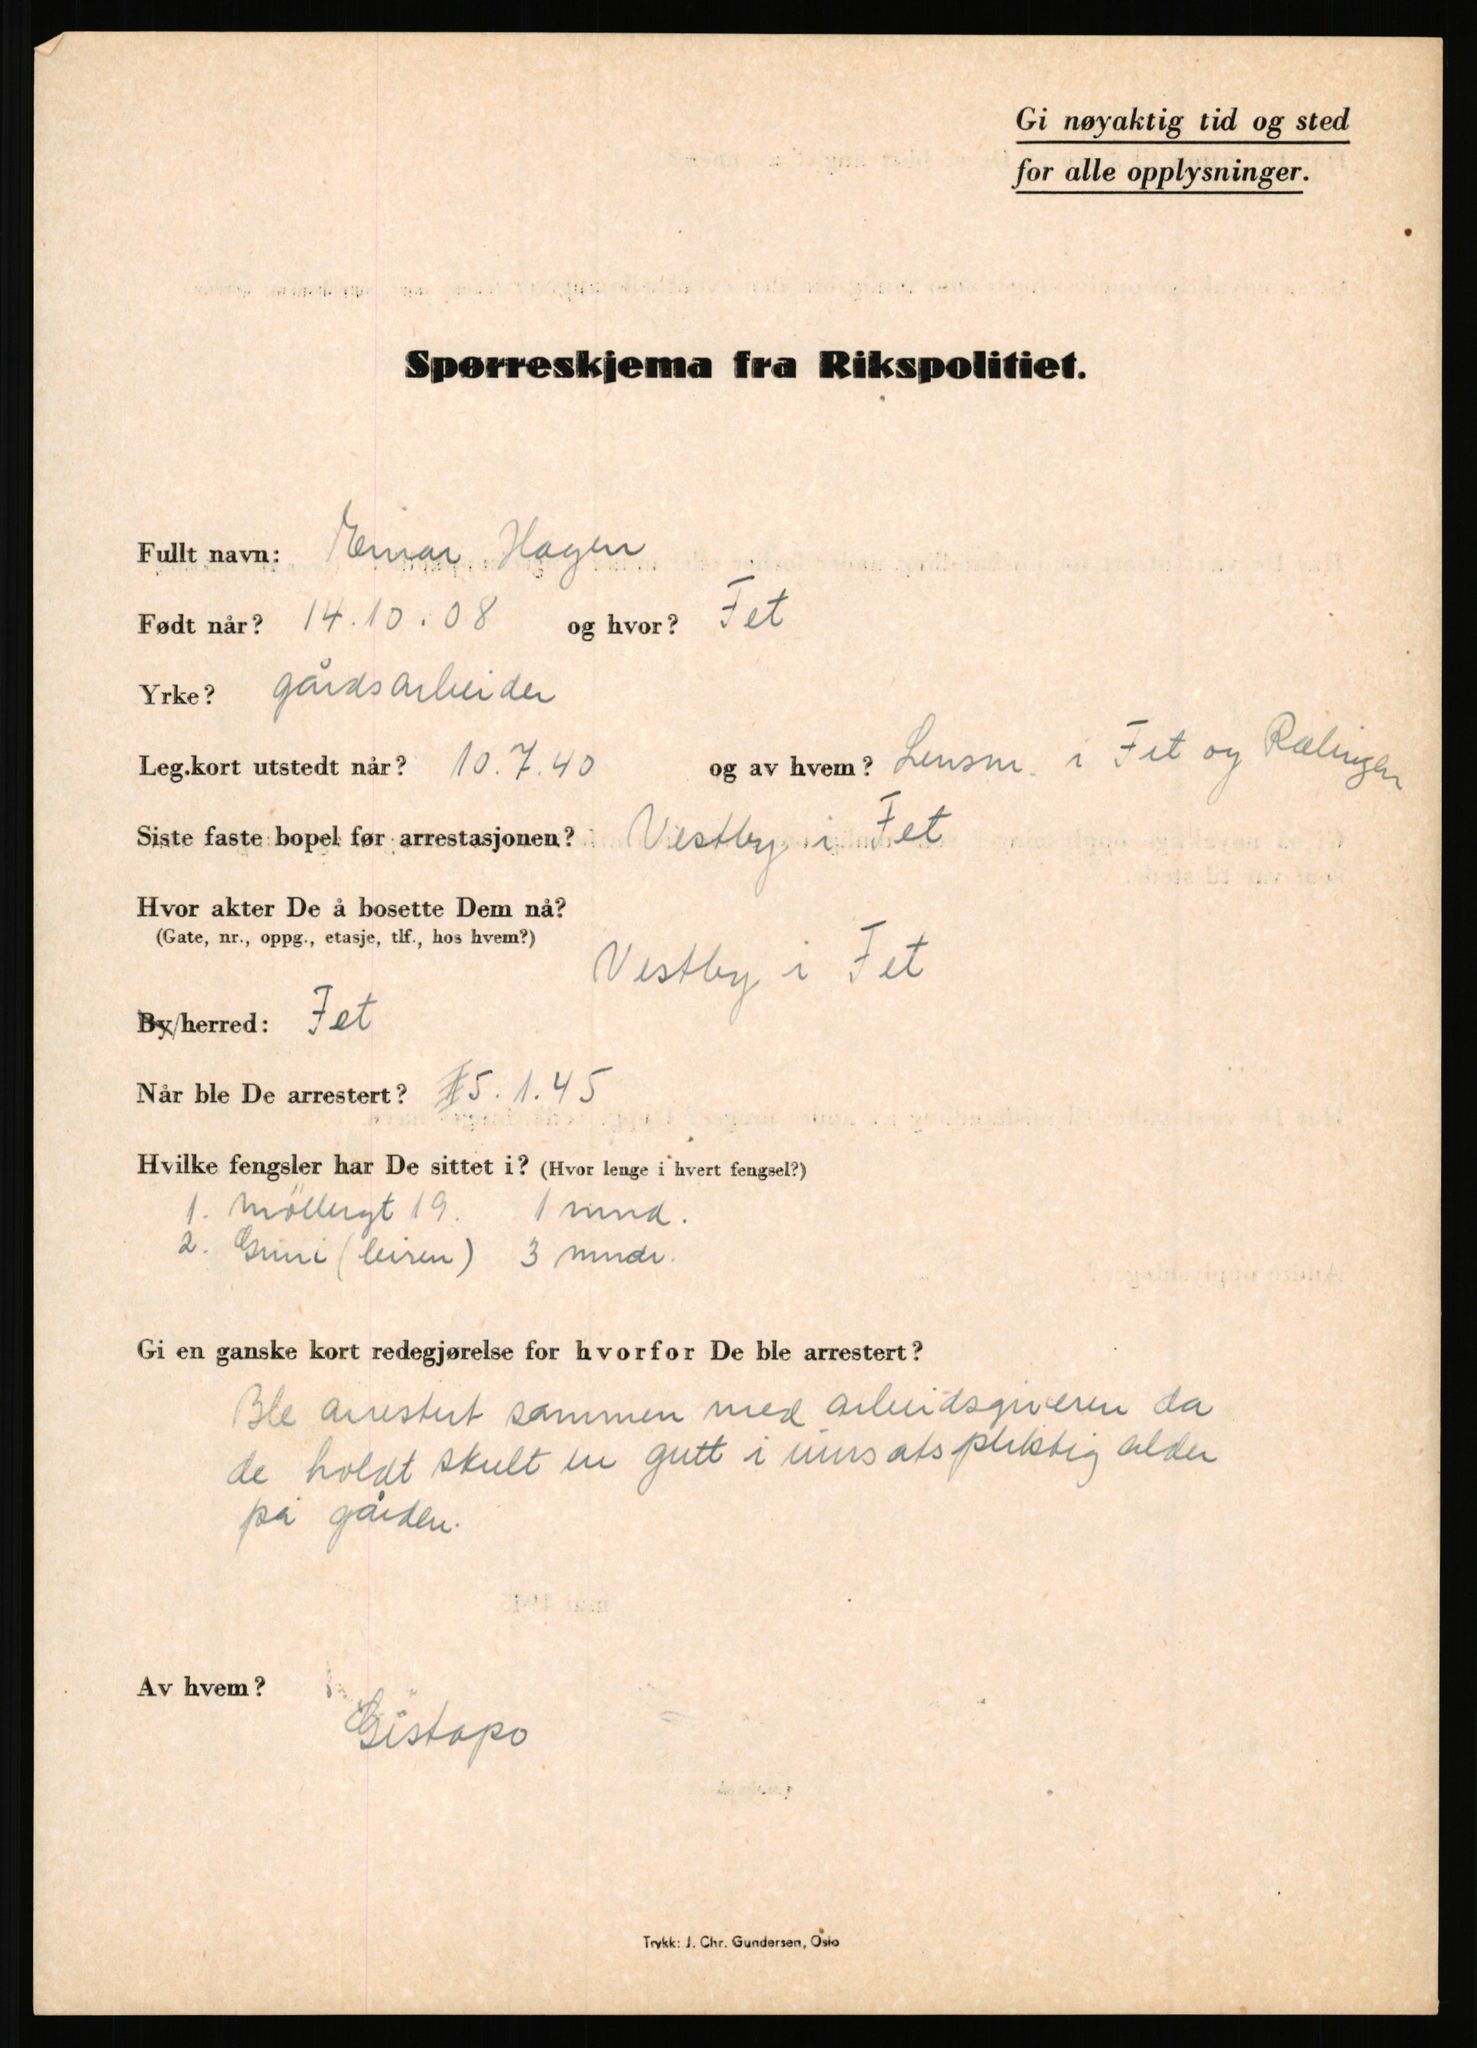 Gi nøyaktig tid og sted
for alle opplysninger.
Spørreskjema fra Rikspolitiet.
Fullt navn: Einar Hagen
Født når? 14.10.08 og hvor? Fet
Yrke? gårdsarbeider
Leg.kort utstedt når? 10.7.40 og av hvem? Lensm. i Fet og Rælingen
Siste faste bopel før arrestasjonen? Vestby i Fet
Hvor akter De å bosette Dem nå?
(Gate, nr., oppg., etasje, tlf., hos hvem?)
Vestby i Fet
By/herred: Fet
Når ble De arrestert? 5.1.45
Hvilke fengsler har De sittet i? (Hvor lenge i hvert fengsel?)
1. Möllergt 19. 1 mnd.
2. Grini (leiren) 3 mndr.
Gi en ganske kort redegjørelse for hvorfor De ble arrestert?
Ble arrestert sammen med arbeidsgiveren da
de holdt skult en gutt i innsatspliktig alder
på gården.
Av hvem?
Gestapo
Trykk: J. Chr. Gundersen, Oslo